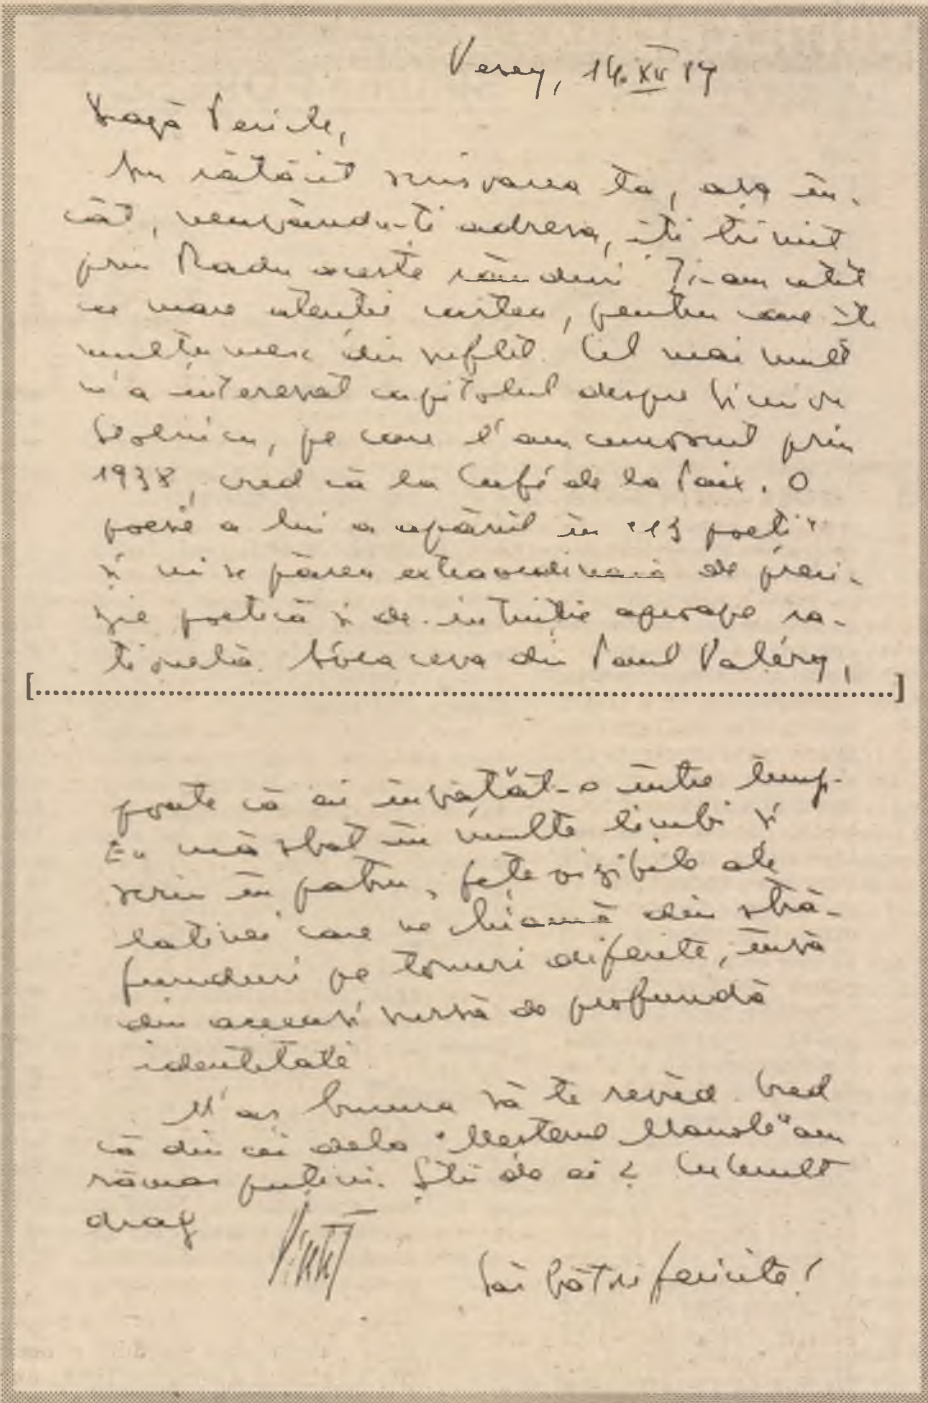 Veney, 14.XII 87
Dragă Pericle,
Am rătăcit scrisoarea ta, aşa în-
cât, neavându-ţi adresa, îţi trimit
prin Radu aceste rânduri. Ţi-am citit
cu mare atenţie cartea, pentru care îţi
mulţumesc din suflet. Cel mai mult
m'a interesat capitolul despre Simion
Stolnicu, pe care l'am cunoscut prin
1938, cred că la Café de la Paix. O
poesie a lui a apărut în "13 poeţi"
şi mi se părea extraordinară de preci-
zie poetică şi de intuiţie aproape ra-
ţională. Avea ceva din Paul Valéry,
[...]
poate că ai învăţat-o între timp.
Eu mă sbat în multe limbi şi
scriu în patru, feţe vizibile ale
latinei care ne chiamă din stră-
funduri pe tonuri diferite, însă
din aceeaşi sursă de profundă
identitate.
M'aş bucura să te revăd. Cred
că din cei dela "Meşterul Manole" am
rămas puţini. Ştii de ei? Cu mult
drag
Vintilă
Sărbători fericite!